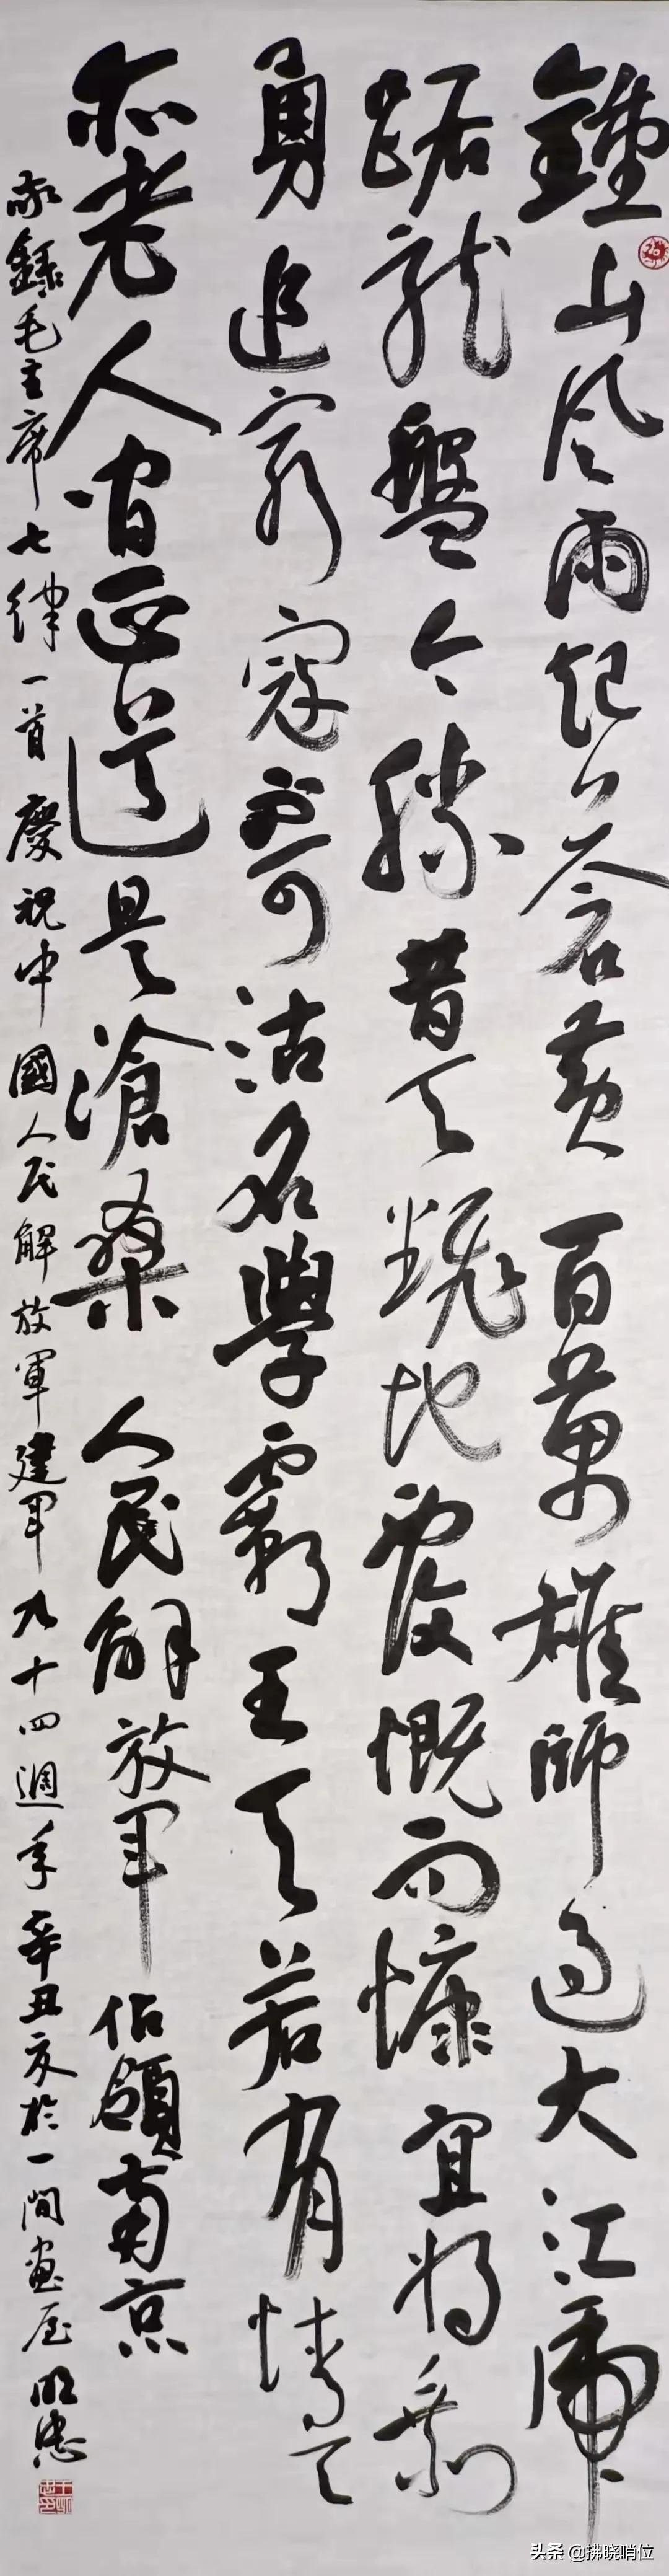 鍾山风雨起蒼黄百萬雄師过大江虎
踞龍盤今勝昔天翻地覆慨而慷宜将剩
勇追窮寇不可沽名學霸王天若有情天
亦老人间正道是滄桑人民解放軍佔領南京
敬錄毛主席七律一首慶祝中國人民解放軍建軍九十四週年辛丑夏於一間畫屋明忠
头条 @拂晓哨位